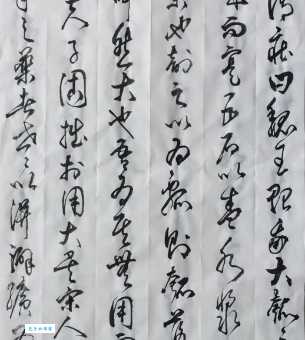 莊曰魏王貽我大瓠
而實五石以盛水漿
也剖之以為瓢則瓠落
然大也吾為其無用而
夫子固拙於用大矣宋人
之藥者世世以洴澼絖